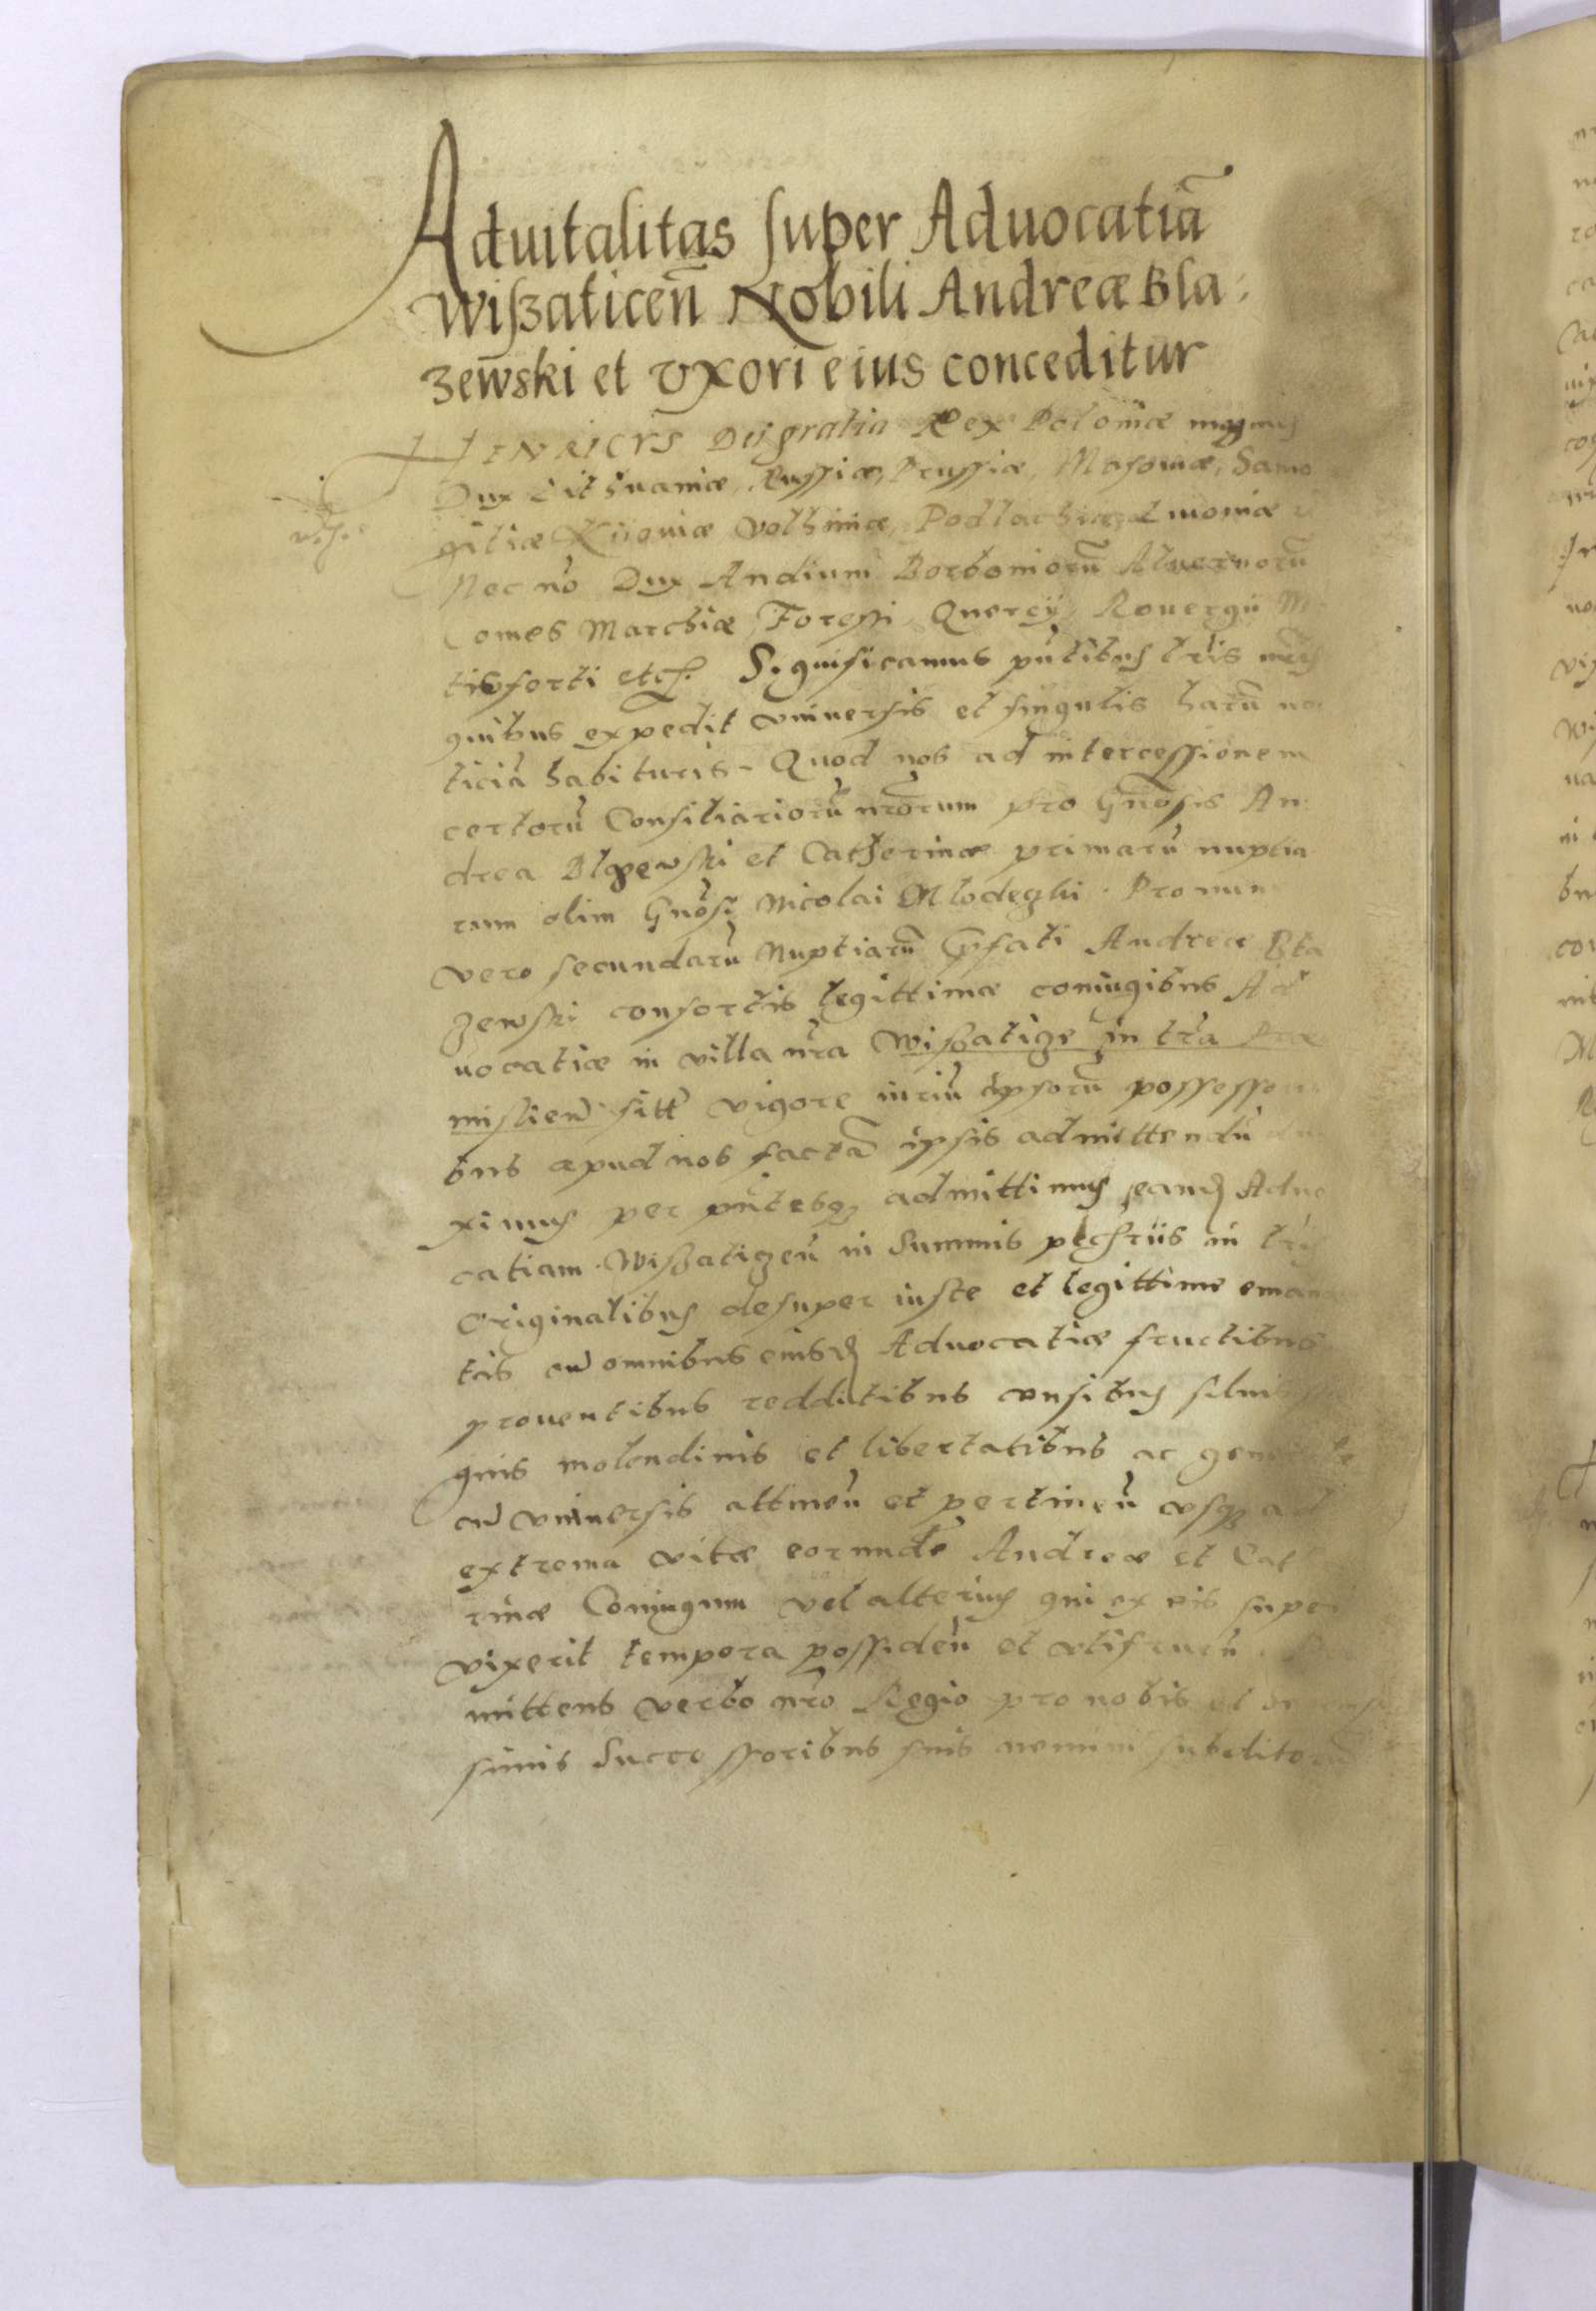 Aduitalitas super Aduocatiã
Wiſzaticeñ Nobili Andreæ Bla:
zewski et vxori eius conceditur
HENRICVS Dei gratia Rex Poloniæ magnus
Dux Lithuaniæ, Russiæ, Prussiæ, Masouiæ, Samo
gitiæ Kiiouiæ Volhiniæ, Podlachiæ Liuoniæ
Nec nõ Dux Andium Borboniorũ Aluernorũ
Comes Marchiæ, Foressi, Quercÿ, Rouergii M
tisforti etc. Significamus pñtibus lr̃is nr̃is
quibus expedit vniuersis et singulis harũ no
ticiã habituris. Quod nos ad intercessionem
certorũ Consiliariorũ nr̃orum pro Gñosis An:
drea Blazewski et Catherinæ primarũ nuptia
rum olim Gnõsi Nicolai Mlodeczki. Pro nun
vero secundarũ Nuptiarũ p̃fati Andreæ Bla
zewski consortis legittimæ coniugibus Ad
uocatiæ in villa nr̃a Wiſzatize in tr̃a Præ
mislień sitt vigore iuriũ ipsorũ possesso
bus apud nos factã ipsis admittendũ du
ximus per pñtesq; admittimus eand Aduo
catiam Wiſzatizeñ in Summis pecũriis in lr̃is
Originalibus desuper iuste et legittime eman
tis cũ omnibus eiusd Aduocatiæ fructibus
prouentibus redditibus censibus siluis
quis molendinis et libertatibus ac gen
cũ vniuersis attineñ et pertineñ vsq; ad
extrema vitæ eorundẽ Andreæ et Cat
rinæ Coniugum vel alterius qui ex eis super
vixerit tempora possideñ et vtifrueñ.
mittens verbo nr̃o Regio pro nobis et
simis Successoribus suis nemini subditorũ